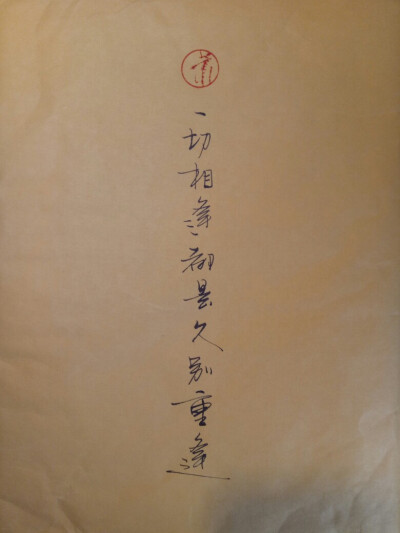 一切相逢都是久别重逢